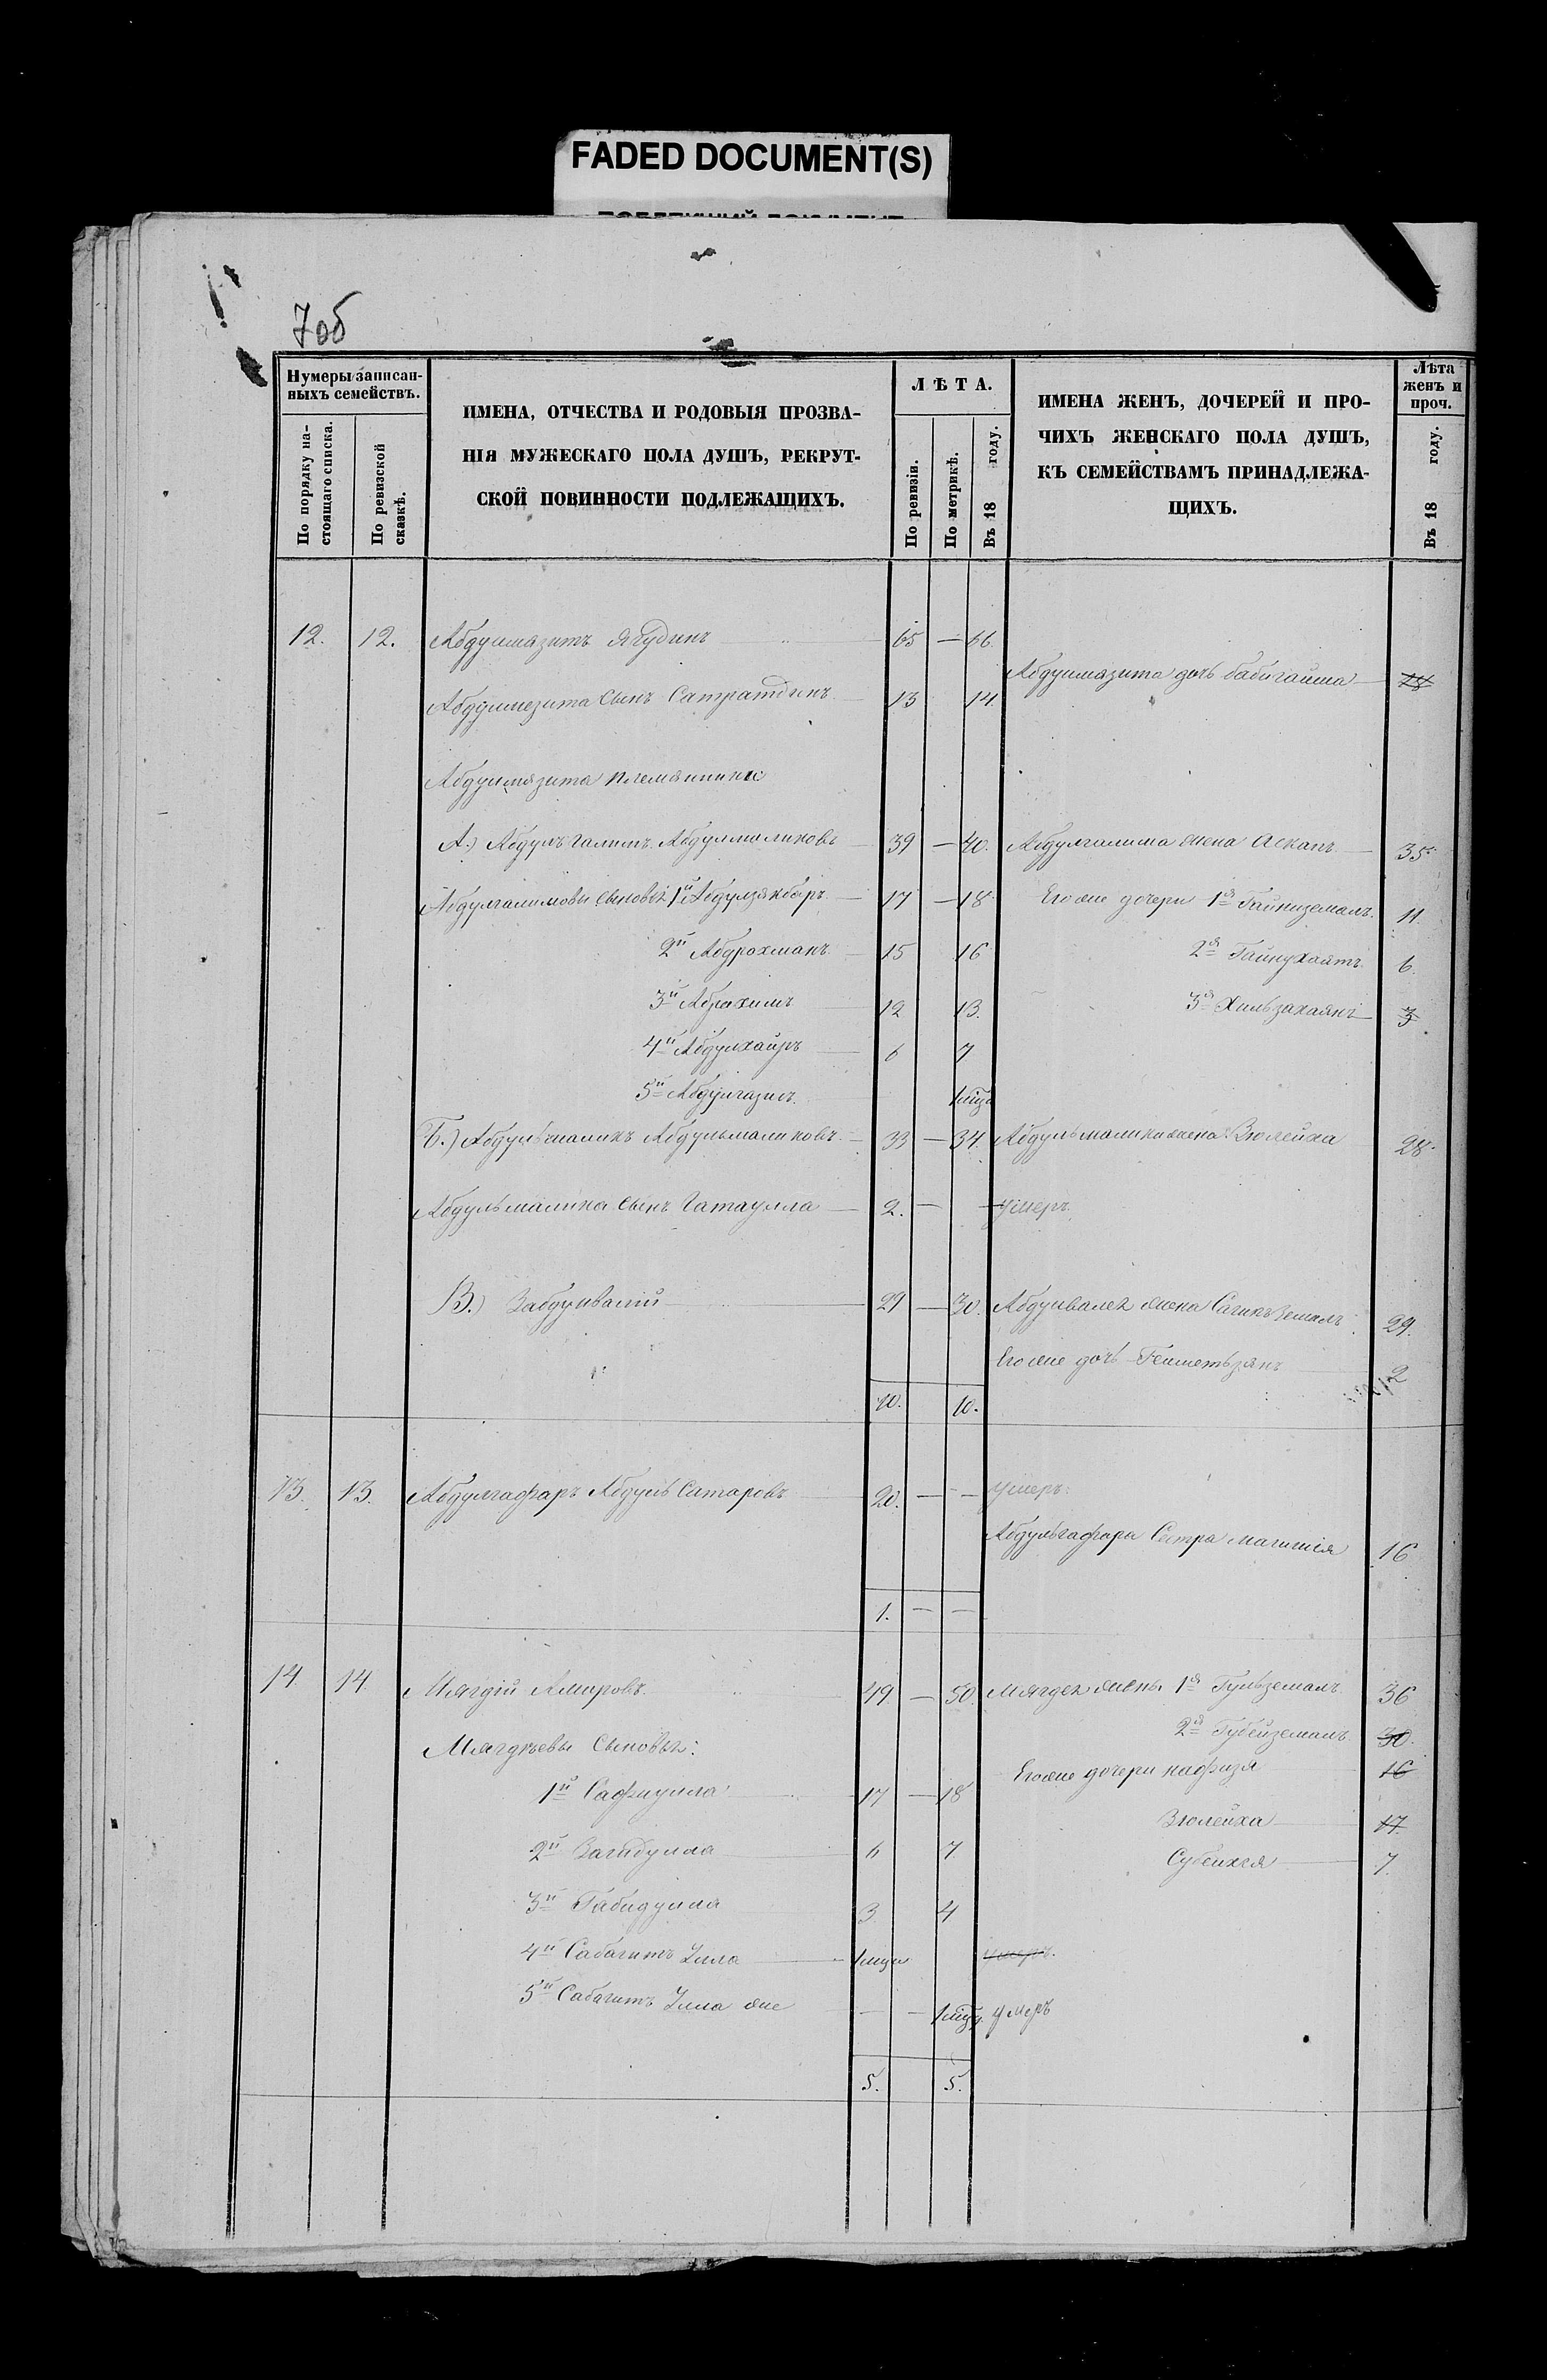 FADED DOCUMENT(S)
7об
Нумеры записан-
ныхъ семействъ.
По порядку на-
стоящаго списка.
По ревизской
сказкѣ.
ИМЕНА, ОТЧЕСТВА И РОДОВЫЯ ПРОЗВА-
НІЯ МУЖЕСКАГО ПОЛА ДУШЪ, РЕКРУТ-
СКОЙ ПОВИННОСТИ ПОДЛЕЖАЩИХЪ.
ЛѢТА.
По ревизіи.
По метрикѣ.
Въ 18 году.
ИМЕНА ЖЕНЪ, ДОЧЕРЕЙ И ПРО-
ЧИХЪ ЖЕНСКАГО ПОЛА ДУШЪ,
КЪ СЕМЕЙСТВАМЪ ПРИНАДЛЕЖА-
ЩИХЪ.
Лѣта
женъ и
проч.
Въ 18 году.
12. 12. Абдулмазитъ Ягудинъ 65 — 66
Абдулмязита дочь Бабигайша
Абдулмезита Сынъ 13 14
Абдулмязита племянники
А.) Абдулъ Галимъ Абдулмаликовъ 39 — 40. Абдулгалима жена Асканъ 35
Абдулгалимовы сыновья 1й Абдулзякбаръ 17 — 18 Его же дочери 1я Гайниземалъ 11
2й Абдрахманъ 15 16 2я Гайнухаятъ 6
3й Абрахимъ 12 13. 3я 3
4й Абдулхаиръ 6 7
5й Абдулгазизъ
Б.) Абдульмаликъ Абдульмаликовъ 33 — 34 Абдульмалика жена Зюлейха 28
Абдульмалика сынъ Гатаулла 2. — — умеръ.
В.) Забдулвалій 29 — 30. Абдулвалея жена 29.
Его же дочь 2
10. 10.
13. 13. Абдулгафаръ Абдулъ Сатаровъ 20. — — умеръ.
Абдульгафара Сестра 16
1. — —
14. 14. Мягдій Амировъ 49 — 50 Мягдея жены 1я Гульземалъ 36
2я Губейземалъ 30.
Мягдѣевы Сыновья:
Его же дочери Нафиза 16
1й Сафиулла 17 — 18
Зюлейха 17
2й Загидулла 6 7
Субейхея 7.
3й Габидулла 3 4
4й Сабагитъ Улла умеръ.
5й Сабагитъ Улла же — — умеръ
5. 5.